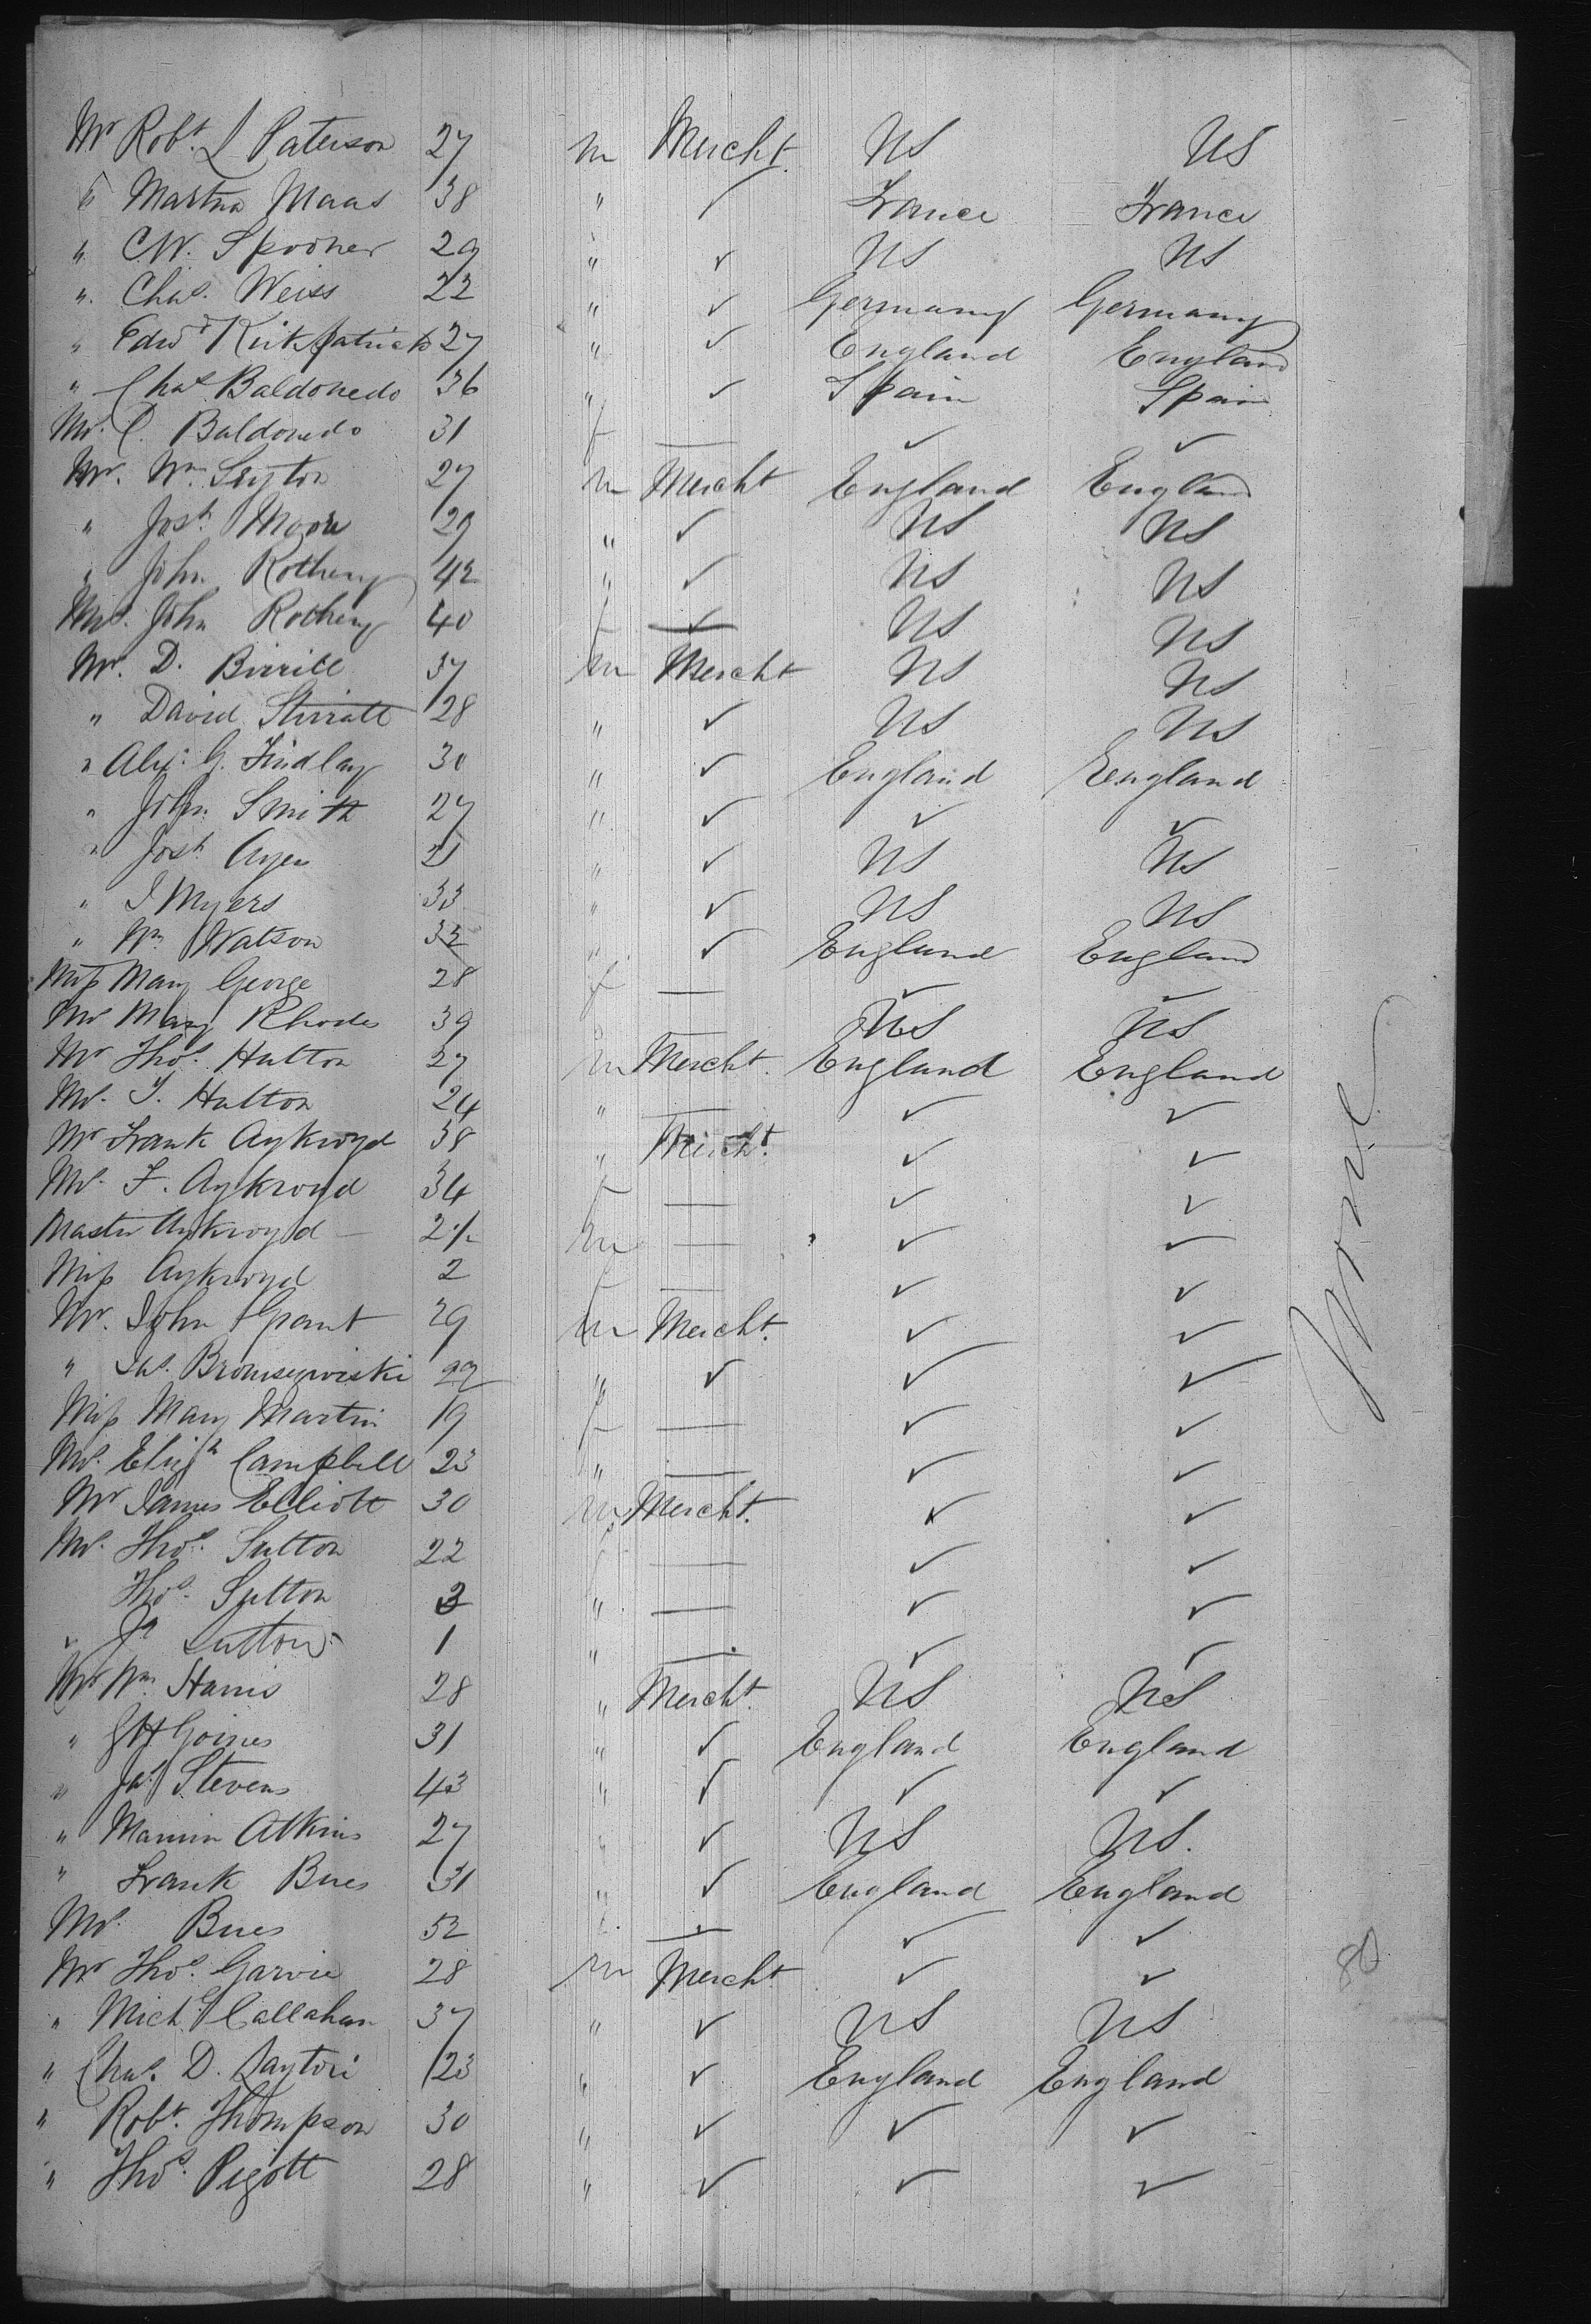 Mr Robt. L Paterson 27 m Mercht. US US
" Martin Maas 38 " ✓ France France
" C.W. Spooner 29 " ✓ US US
" Chas. Weiss 22 " ✓ Germany Germany
" Edwd Kirkpatrick 27 " ✓ England England
" Chas Baldonedo 36 " ✓ Spain Spain
Mrs. C. Baldonedo 31 f — ✓ ✓
Mr. Wm 27 m Mercht England England
" Josh. Moore 29 " ✓ US US
" John Rothery 42 " ✓ US US
Mrs. John Rothery 40 f ✓ US US
Mr. D. Birrill 37 m Mercht US US
" David Stirratt 28 " ✓ US US
" Alex. G. Findlay 30 " ✓ England England
" John Smith 27 " ✓ ✓ ✓
" Josh. Ayer 21 " ✓ US US
" I Myers 33 " ✓ US US
" Wm Watson 32 " ✓ England England
Miss Mary George 28 f — ✓ ✓
Mrs Mary Rhodes 39 " US US
Mr Thos. Hutton 27 m Mercht. England England
Mrs. T. Hutton 24 " — ✓ ✓
Mr Frank Aykroyd 38 " Mercht. ✓ ✓
Mrs. F. Aykroyd 34 f — ✓ ✓
Master Aykroyd — m — ✓ ✓
Miss Aykroyd 2 f — ✓ ✓
Mr. John Grant 29 m Mercht. ✓ ✓
" 22 " ✓ ✓ ✓
Miss Mary Martin 19 f — ✓ ✓
Mrs. Elizh Campbell 23 " — ✓ ✓
Mr James Elliott 30 m Mercht. ✓ ✓
Mrs. Thos. Sutton 22 f — ✓ ✓
Thos. Sutton 3 " — ✓ ✓
" Jn Sutton 1 " — ✓ ✓
Mr Wm. Harris 28 " Mercht. US US
" Goines 31 " ✓ England England
" Jas. Stevens 43 " ✓ ✓ ✓
" Atkins 27 " ✓ US US.
" Frank Bues 31 " ✓ England England
Mrs. Bues 52 f. — ✓ ✓
Mr Thos. Garvie 28 m Mercht. ✓ ✓
" Michl Callahan 37 " ✓ US US
" Chas. D. 23 " ✓ England England
" Robt. Thompson 30 " ✓ ✓ ✓
" Thos. Pigott 28 " ✓ ✓ ✓
None
80